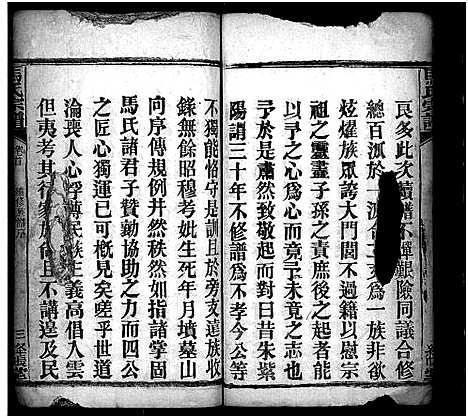 良多此次續譜不憚艱險同議合修
總百派於一派合 支為一族非欲
炫燿族眾誇大門閭不過藉以慰宗
祖之靈盡子孫之責庶後之為子孫
予於是肅然起而對曰昔朱紫
陽謂三十年不修譜為不孝今公等
不獨能恪守是訓且於旁支遠族收
錄無餘昭穆考妣生死年月墳墓山
向序傳規例井然秩然如指諸掌固
馬氏諸君子贊勷協助之力而四公
之匠心獨運已可概見矣嗟乎世道
淪喪人心浮薄民族主義高倡入雲
但夷考其行家族尚且不講遑及民
馬氏宗譜
卷首
三